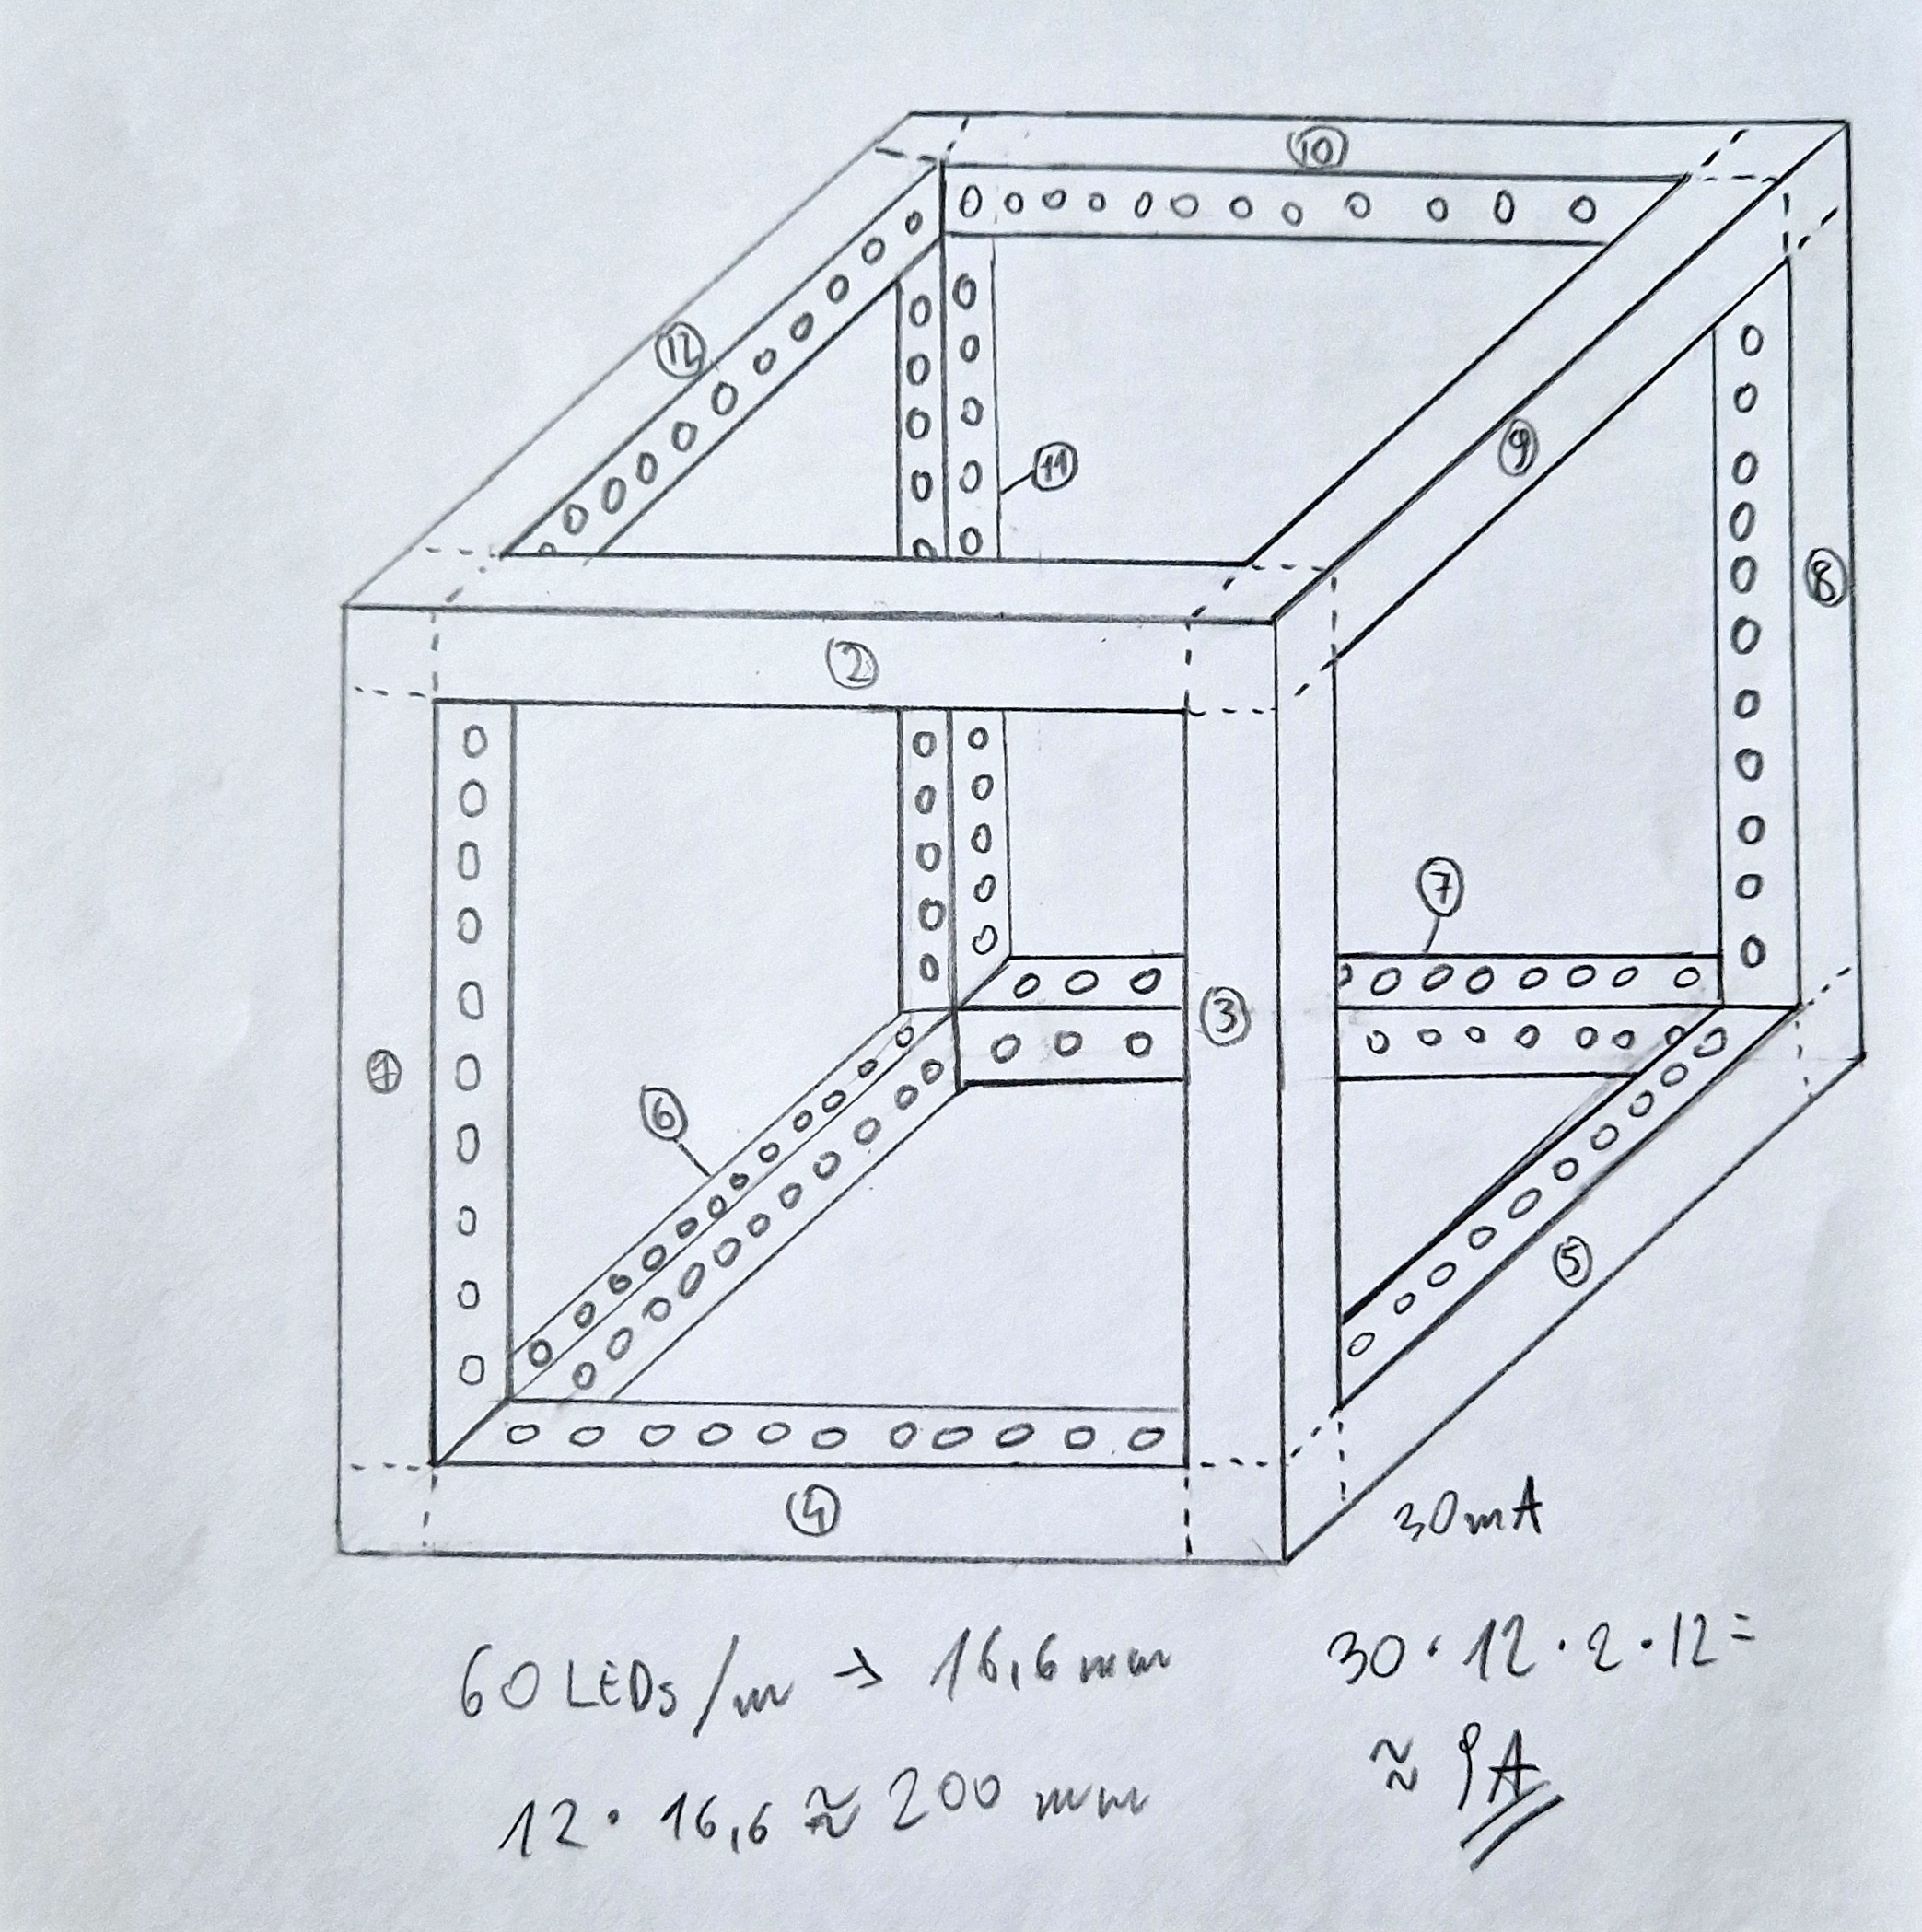 10
12
11
9
8
2
7
3
1
6
5
4
30mA
60 LEDs/m → 16,6 mm
12 · 16,6 ≈ 200 mm
30 · 12 · 2 · 12 =
≈ 9A